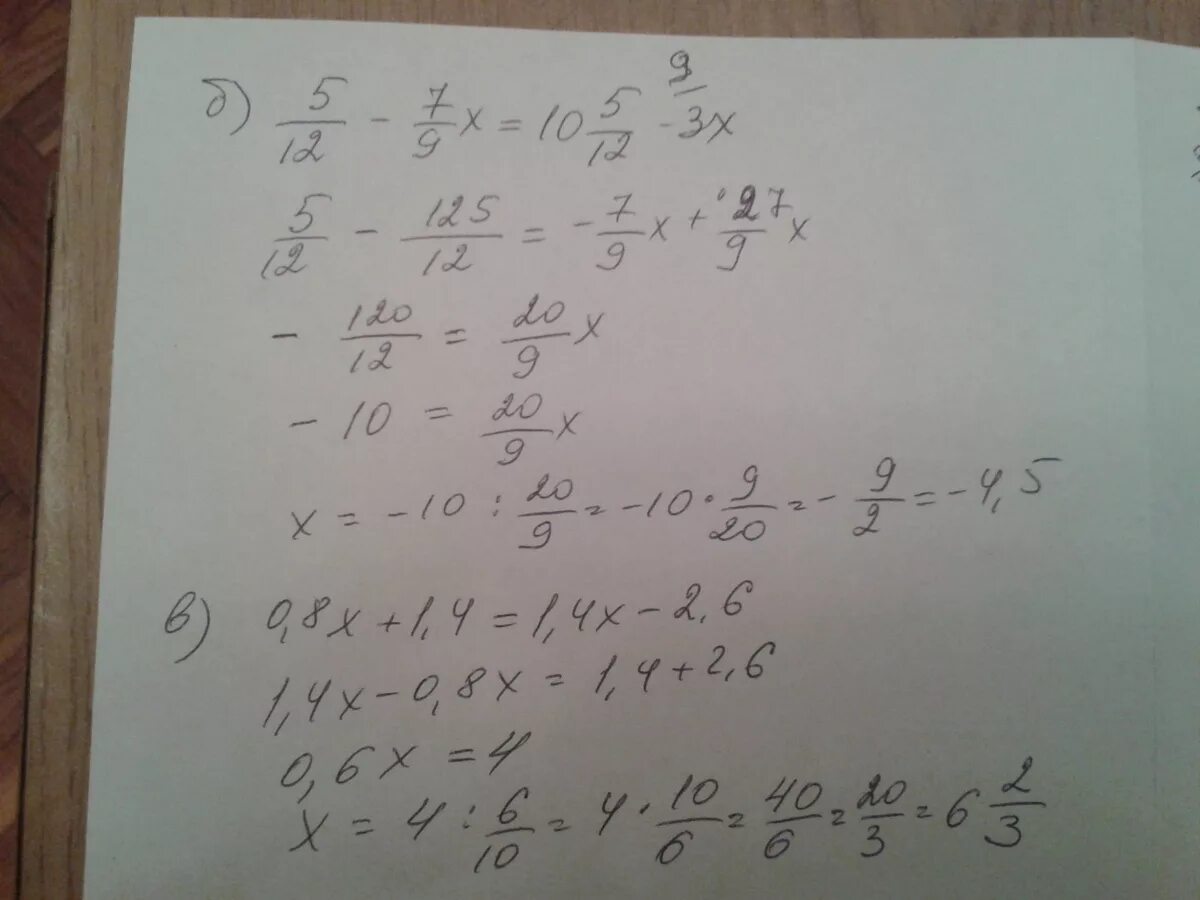 б) 5/12 - 7/9 x = 10 5/12 - 9/ 3x
5/12 - 125/12 = - 7/9 x + 27/9 x
- 120/12 = 20/9 x
- 10 = 20/9 x
x = -10 : 20/9 = -10 · 9/20 = - 9/2 = -4,5
в) 0,8x + 1,4 = 1,4x - 2,6
1,4x - 0,8x = 1,4 + 2,6
0,6x = 4
x = 4 : 6/10 = 4 · 10/6 = 40/6 = 20/3 = 6 2/3